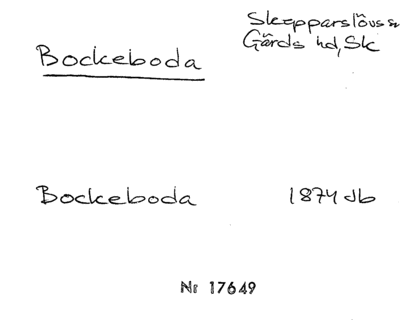 Skepparslövs sn
Gärds hd, Sk
Bockeboda
Bockeboda 1874 Jb
Nr 17649